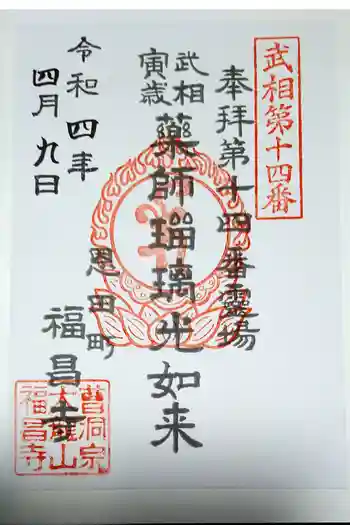 武相第十四番
奉拝第十四番霊場
武相
寅歳
藥師瑠璃光如来
恩田町
福昌寺
令和四年
四月九日
曹洞宗
大雄山
福昌寺